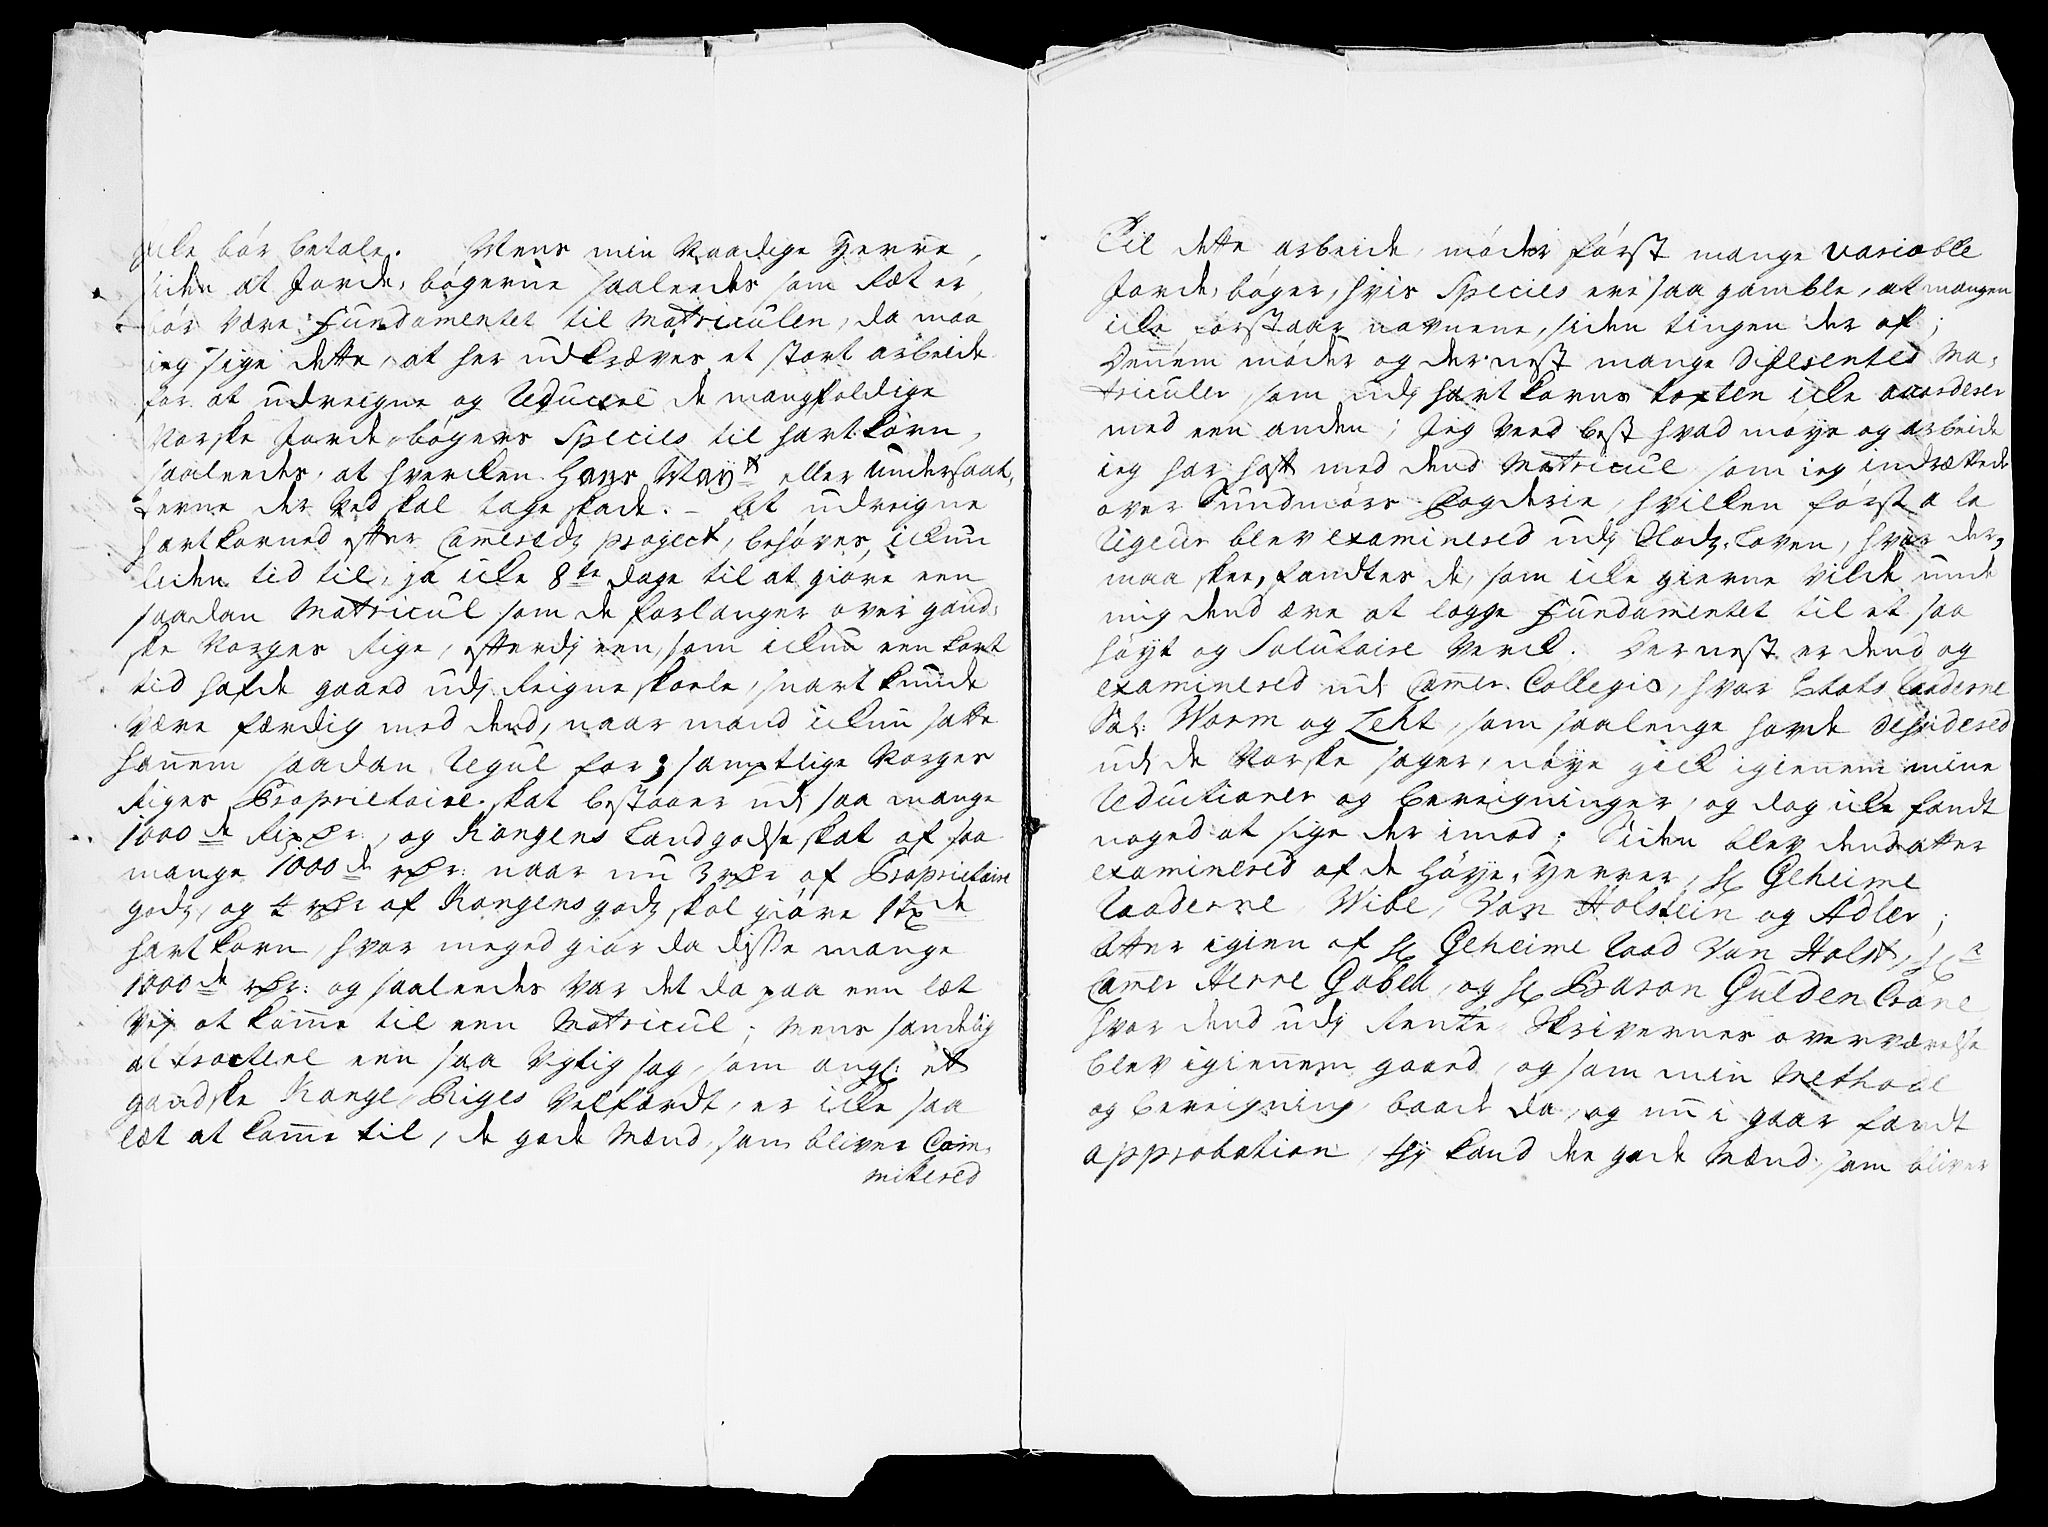 icke bør betale. Mens min Naadige Herre,
siden at Jorde-bøgerne saaledes som sæt er,
bør være Fundamentet til Matriculen, da maa
ieg sige dette, at her udkræves et stort arbeide
for at udreigne og Reducere de mangfoldige
Norske Jorde-bøgers Species til hartkorn,
saaledes, at hvercken Hans Mayt eller Undersaat-
terne der ved skal tage skade. – At udreigne
hartkorned efter Camereds project, behøves ickun
liden tid til, ja icke 8te dage til at giøre een
saadan Matricul som de forlanger over gand-
ske Norges Rige, efterdj een, som ickun een kort
tid hafde gaaed udj Reigneskoele, snart kunde
være færdig med dend, naar mand ickun satte
hannem saadan Regul for; samptlige Norges
Riges Proprietaire-skat bestaaer udj saa mange
1000de Rixdr:, og Kongens Landgodses skat af saa
mange 1000de rdr: naar nu 3 rdr af Proprietaire
gods, og rdr af Kongens gods skal giøre 1 tde
hartkorn, hvor meged giør da disse mange
1000de rdr: og saaledes var det da paa een læt
vej at komme til een Matricul; mens sandelig
at tractere een saa vgtig sag, som angl: ett
gandske Konge Riges velfærdt, er icke saa
læt at komme til, de gode Mænd, som bliver Com-
mitered
Til dette arbeide møder først mange variable
Jorde-bøger, hvis Species ere saa gamble, at mangen
icke forstaar navnene, siden tingen der af;
Dennem møder og dernest mange Differented Ma-
triculer, som udj hartkorns taxten icke accorderer
med een anden; Jeg veed best hvad møye og arbeide
ieg har haft med dend Matricul som ieg indrettede
over Sundmørs Fogderie, hvilken først a la
Rigeur blev examinered udj Slods-Loven, hvor der,
maa skee, fandtes de, som icke gierne vilde unde
mig dend ære at legge Fundamentet til et saa
høyt og Salutaire verck. Dernest er dend og
examinered udi Cammer-Collegio, hvor Etats Raaderne
Sal: Worm og Zeht, som saalenge hafde
udi de Norske sager, nøye gick igiennem mine
Reductioner og bereigninger, og dog icke fandt
noged at sige der imod; Siden blev dend atter
examinered af de Høye-Herrer, hl Geheime
Raaderne, Wibe, Von Holstein og Adler;
Atter igien af hl Geheime Raad Von Holst, hr
Cammer Herre Gabell, og hl Baron Gulden Crone
hvor dend udj Rente-Skrivernes overværelse
blev igiennem gaaed, og som min Methode
og bereigning, baade da, og nu i gaar fandt
approbation, thj kand den gode Mænd, som bliver